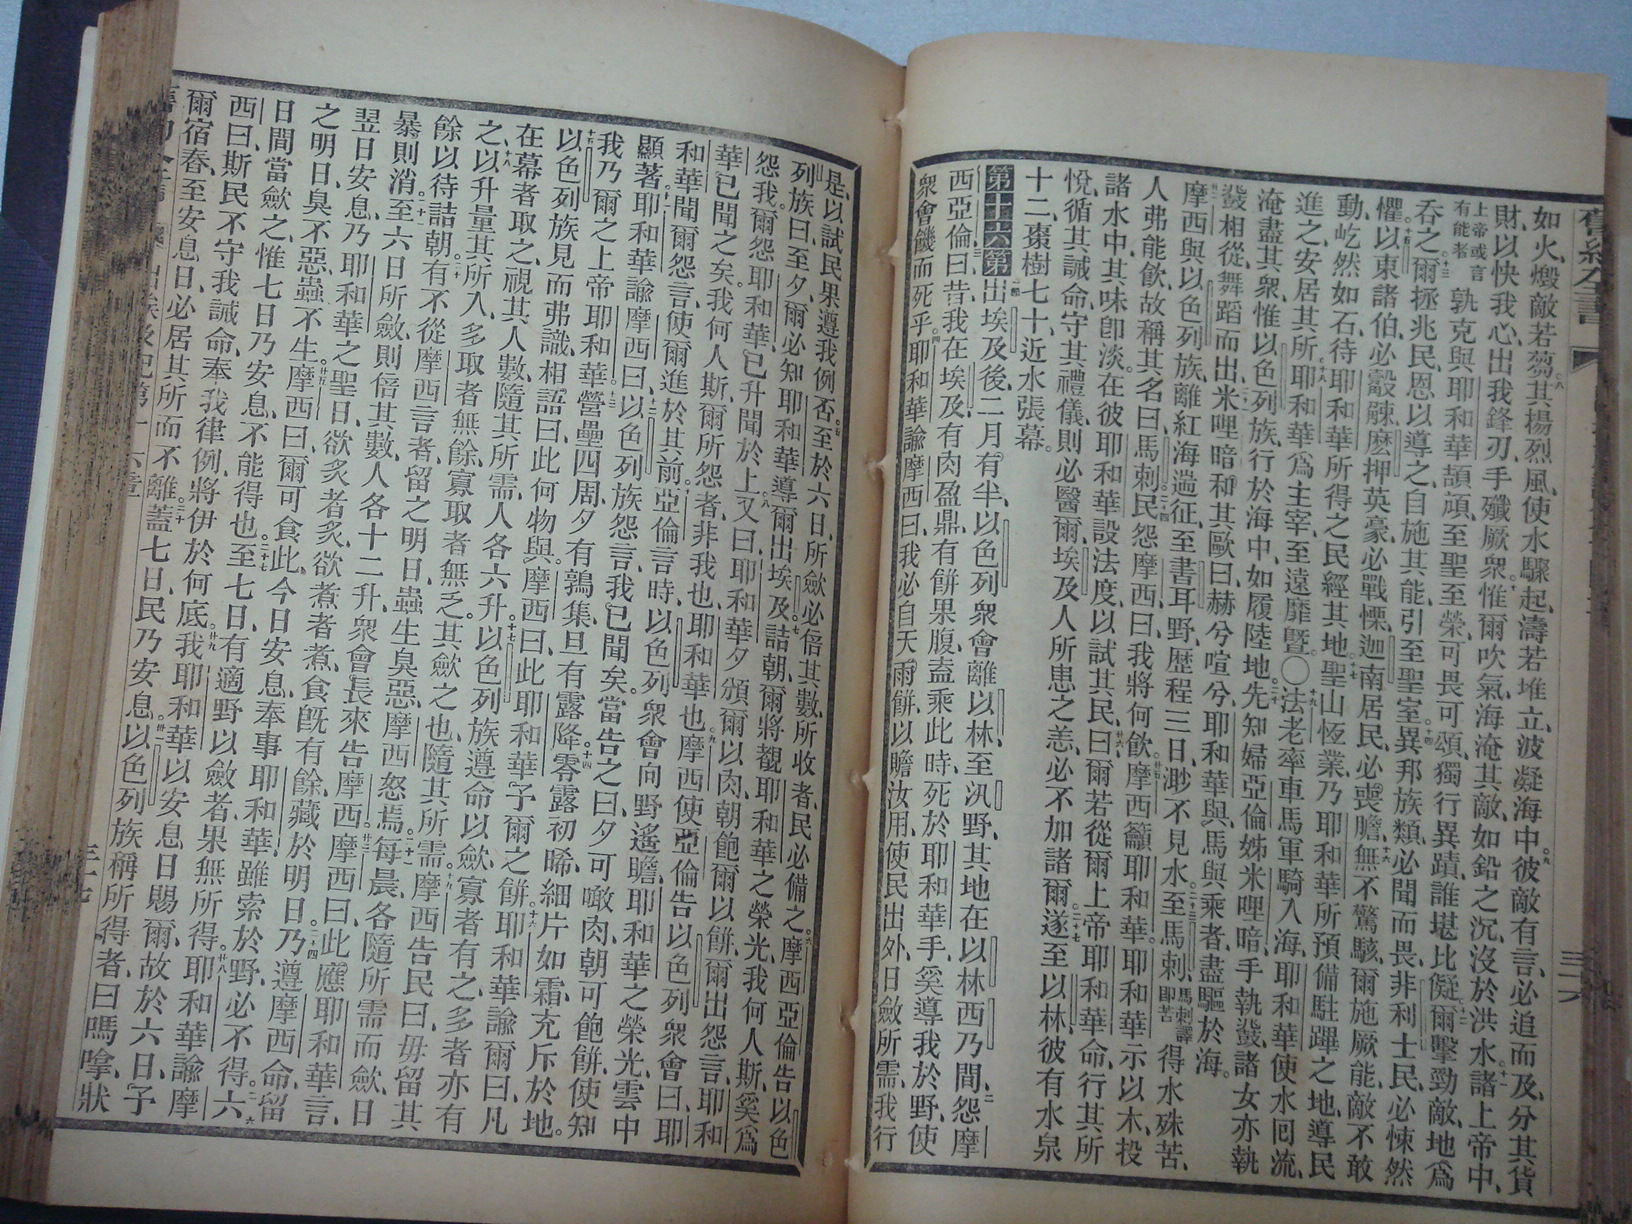 舊約全書
三十六
如火燬敵若芻其揚烈風使水驟起濤若堆立波凝海中彼敵有言必追而及分其貨
財以快我心出我鋒刃手殲厥衆惟爾吹氣海淹其敵如鉛之沉沒於洪水諸上帝中
上帝或言有能者孰克與耶和華頡頏至聖至榮可畏可頌獨行異蹟誰堪比儗爾擊勁敵地爲
吞之爾拯兆民恩以導之自施其能引至聖室異邦族類必聞而畏非利士民必悚然
懼以東諸伯必觳觫摩押英豪必戰慄迦南居民必喪膽無不驚駭爾施厥能敵不敢
動屹然如石待耶和華所得之民經其地聖山恆業乃耶和華所預備駐蹕之地導民
進之安居其所耶和華爲主宰至遠靡曁〇法老率車馬軍騎入海耶和華使水囘流
淹盡其衆惟以色列族行於海中如履陸地先知婦亞倫姊米哩暗手執鼗諸女亦執
鼗相從舞蹈而出米哩暗和其歌曰赫兮喧兮耶和華與馬與乘者盡驅於海
摩西與以色列族離紅海遄征至書耳野歷程三日渺不見水至馬剌馬剌譯卽苦得水殊苦
人弗能飲故稱其名曰馬剌民怨摩西曰我將何飲摩西籲耶和華耶和華示以木投
諸水中其味卽淡在彼耶和華設法度以試其民曰爾若從爾上帝耶和華命行其所
悅循其誡命守其禮儀則必醫爾埃及人所患之恙必不加諸爾遂至以林彼有水泉
十二棗樹七十近水張幕
第十六第出埃及後二月有半以色列衆會離以林至汛野其地在以林西乃間怨摩
西亞倫曰昔我在埃及有肉盈鼎有餅果腹盍乘此時死於耶和華手奚導我於野使
衆會饑而死乎耶和華諭摩西曰我必自天雨餅以贍汝用使民出外日斂所需我行
是以試民果遵我例否至於六日所斂必倍其數所收者民必備之摩西亞倫告以色
列族曰至夕爾必知耶和華導爾出埃及詰朝爾將觀耶和華之榮光我何人斯奚爲
怨我爾怨耶和華已升聞於上又曰耶和華夕頒爾以肉朝飽爾以餅爾出怨言耶和
華已聞之矣我何人斯爾所怨者非我也耶和華也摩西使亞倫告以色列衆會曰耶
和華聞爾怨言使爾進於其前亞倫言時以色列衆會向野遙瞻耶和華之榮光雲中
顯著耶和華諭摩西曰以色列族怨言我已聞矣當告之曰夕可噉肉朝可飽餅使知
我乃爾之上帝耶和華營壘四周夕有鶉集旦有露降零露初晞細片如霜充斥於地
以色列族見而弗識相語曰此何物與摩西曰此耶和華予爾之餅耶和華諭爾曰凡
在幕者取之視其人數隨其所需人各六升以色列族遵命以斂寡者有之多者亦有
之以升量其所入多取者無餘寡取者無乏其斂之也隨其所需摩西告民曰毋留其
餘以待詰朝有不從摩西言者留之明日蟲生臭惡摩西怒焉每晨各隨所需而斂日
暴則消至六日所斂則倍其數人各十二升衆會長來告摩西摩西曰此應耶和華言
翌日安息乃耶和華之聖日欲炙者炙欲煮者煮食旣有餘藏於明日乃遵摩西命留
之明日臭不惡蟲不生摩西曰爾可食此今日安息奉事耶和華雖索於野必不得六
日間當斂之惟七日乃安息不能得也至七日有適野以斂者果無所得耶和華諭摩
西曰斯民不守我誡命奉我律例將伊於何底我耶和華以安息日賜爾故於六日予
爾宿舂至安息日必居其所而不離蓋七日民乃安息以色列族稱所得者曰嗎嗱狀
出埃及記第十六章
三十七